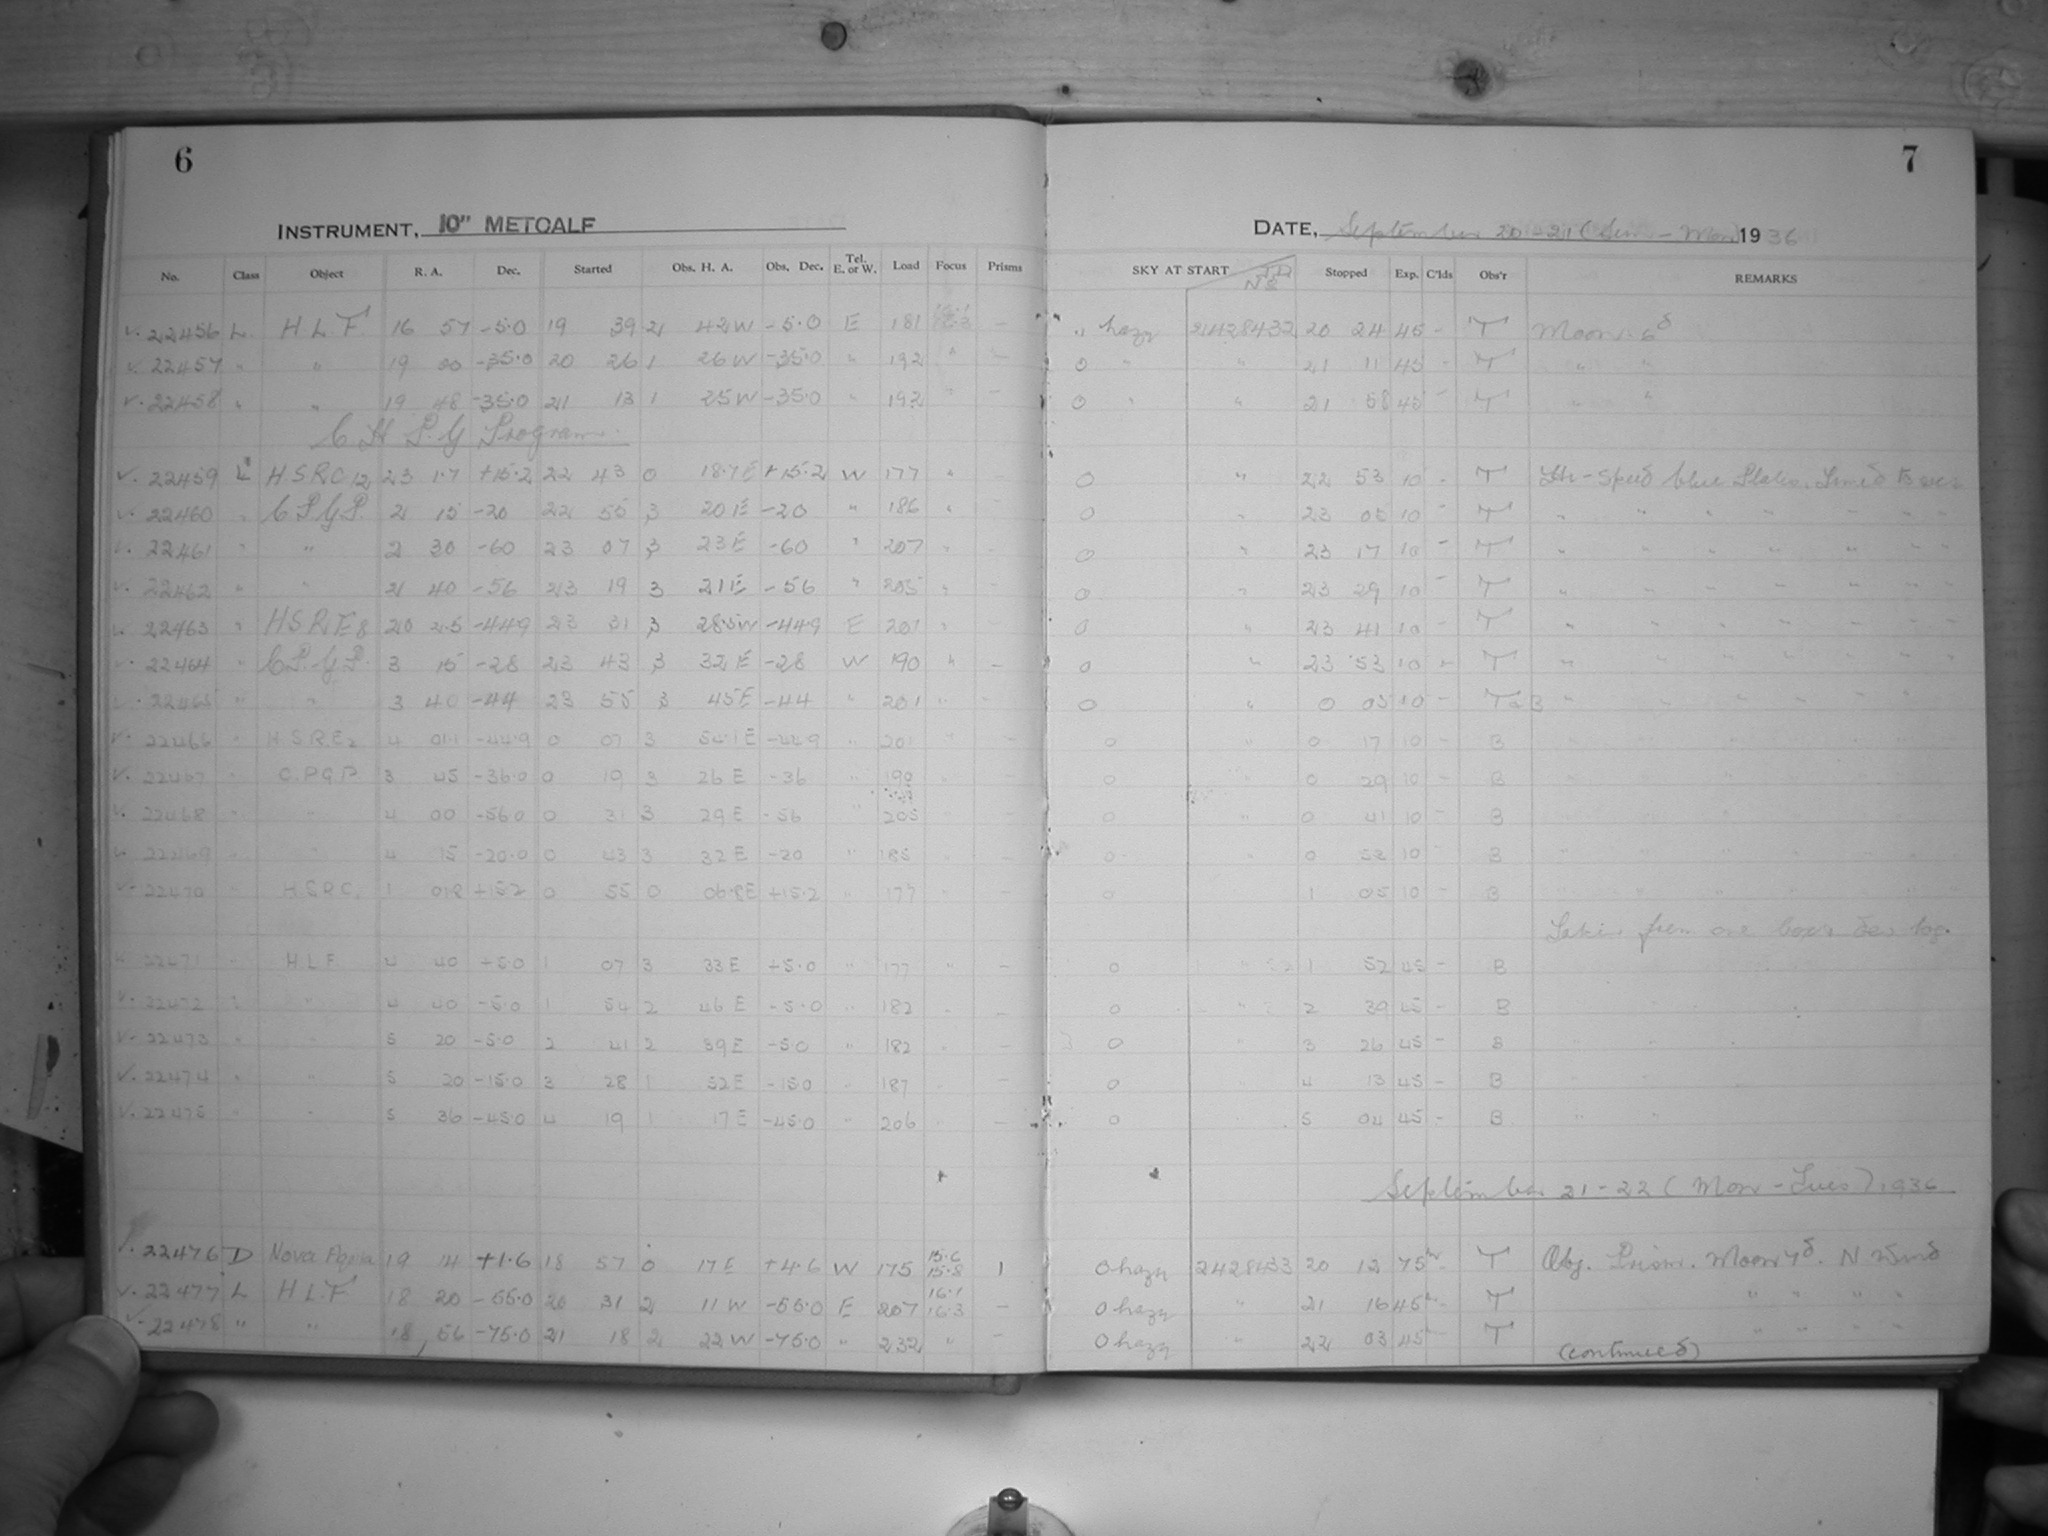 6
INSTRUMENT, 10" METCALF
No. Class Object R. A. Dec. Started Obs. H. A. Obs. Dec. Tel. E. or W. Load Focus Prisms
22456 L H L F 16 57 -5.0 19 39 2 42W -5.0 E 181 —
22457 " " 19 00 -35.0 20 26 1 26W -35.0 " 192 "
22458 " " 19 48 -35.0 21 13 1 25W -35.0 " 192 "
Program
22459 L HSRC12 23 1.7 +15.2 22 43 0 18.7E +15.2 W 177 "
22460 " C P G P. 2 15 -20 22 55 3 20E -20 " 186 "
22461 " " 2 30 -60 23 07 3 23E -60 " 207 "
22462 " " 2 40 -56 23 19 3 21E -56 " 205 "
22463 " HSRE8 20 2.5 -44.9 23 31 3 28.5W -44.9 E 201 "
22464 " C P. G P. 3 15 -28 23 43 3 32E -28 W 190 " —
22465 " " 3 40 -44 23 55 3 45E -44 " 201 " —
22466 " H.S.R.E2 4 01.1 -44.9 0 07 3 54.1E -44.9 " 201 "
22467 " C.P.G.P 3 45 -36.0 0 19 3 26E -36 " 190
22468 " " 4 00 -56.0 0 31 3 29E -56 " 205
22469 " " 4 15 -20.0 0 43 3 32E -20 " 185
22470 " H.S.R.C. 1 01.8 +15.2 0 55 0 06.8E +15.2 " 177
22471 " H L F 4 40 +5.0 1 07 3 33E +5.0 " 177 " —
22472 " " 4 40 -5.0 1 54 2 46E -5.0 " 182
22473 " " 5 20 -5.0 2 41 2 39E -5.0 " 182
22474 " " 5 20 -15.0 3 28 1 52E -15.0 " 187
22475 " " 5 36 -45.0 4 19 1 17E -45.0 " 206 " —
22476 D Nova 19 14 +1.6 18 57 0 17E +4.6 W 175 15.6 15.8 1
22477 L H L F 18 20 -55.0 20 31 2 11W -55.0 E 207 16.1 16.3 —
22478 " " 18 56 -75.0 21 18 2 22W -75.0 " 232 " —
7
DATE, September 20-21 (Sun - Mon) 1936
SKY AT START Stopped Exp. C'lds Obs'r REMARKS
" hazy 2428432 20 24 45 - T Moon 6d
0 " " 21 11 45 - T " "
0 " " 21 58 45 - T " "
0 " 22 53 10 - T Hi-Speed blue Plates.
0 " 23 05 10 - T " " " " " "
0 " 23 17 10 - T " " " " " "
0 " 23 29 10 - T " " " " " "
0 " 23 41 10 - T " " " " " "
0 " 23 53 10 - T " " " " " "
0 " 0 05 10 - T & B " " " " "
0 " 0 17 10 - B
0 " 0 29 10 - B
0 " 0 41 10 - B
0 " 0 53 10 B
0 1 05 10 - B
Taken from one box
0 " 1 52 45 - B
0 " 2 39 45 - B
0 " 3 26 45 - B
0 4 13 45 - B
0 5 04 45 - B " "
September 21-22 (Mon - Tues) 1936
0 hazy 2428433 20 12 75m - T Obj. Prism. Moon 7d. N Wind
0 hazy " 21 16 45 - T " " " "
0 hazy " 22 03 45 T " " " "
(continued)